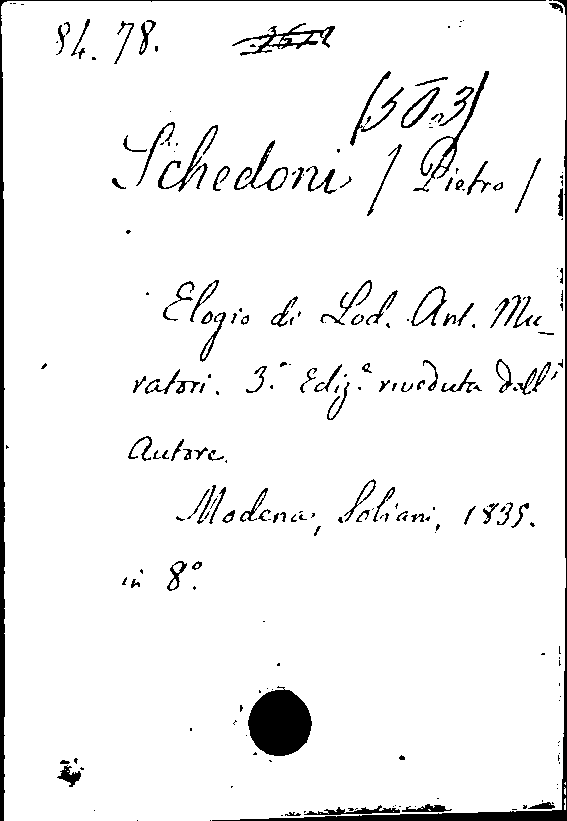 84.78.
Schedoni / Pietro /
Elogio di Lod. Ant. Mu_
ratori. 3.ª Ediz.e riveduta dall'
Autore.
Modena, Soliani, 1835.
in 8.º